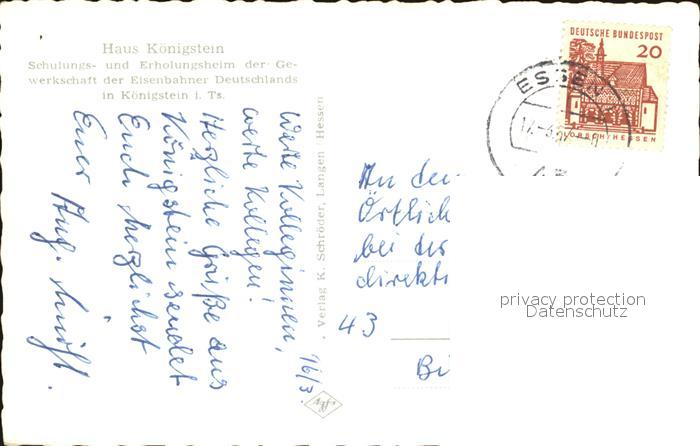 Haus Königstein
Schulungs- und Erholungsheim der Ge-
werkschaft der Eisenbahner Deutschlands
in Königstein i. Ts.
16/3.
Werte Kolleginnen,
werte Kollegen!
Herzliche Grüße aus
Königstein sendet
Euch herzlichst
Euer Aug.
Verlag K. Schröder, Langen / Hessen
DEUTSCHE BUNDESPOST
20
LORSCH/HESSEN
ESSEN
An de
Örtlich
bei de
direkt
43
privacy protection
Datenschutz